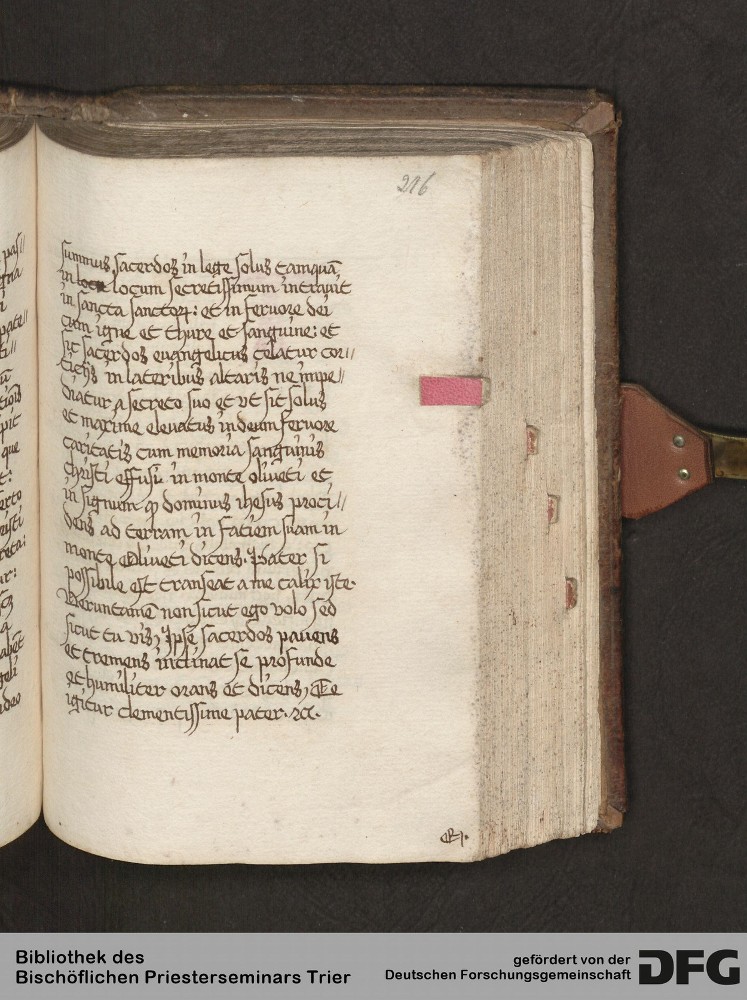 216
summus sacerdos in lege solus tamquā
in locum secretissimum intravit
in sancta sanctoꝝ: et in fervore dei
cum igne et thure et sanguine: et
sic sacerdos euangelicus celatur cor//
tinis in lateribus altaris ne impe//
diatur a secreto suo et vt sit solus
et maxime eleuatus in deum fervore
caritatis cum memoria sanguinis
christi effusi in monte oliueti et
in signum ꝙ dominus ihesus proci//
dens ad terram in faciem suam in
monte Oliueti dicens. Pater si
possibile est transeat a me calix iste.
Veruntamē non sicut ego volo sed
sicut tu vis, Ipse sacerdos pauens
et tremens inclinat se profunde
et humiliter orans et dicens, Te
igitur clementissime pater. ꝛc.
pas//
pate//
pit
que
xpisti
a
geli
ideo
Bibliothek des
Bischöflichen Priesterseminars Trier
gefördert von der
Deutschen Forschungsgemeinschaft
DFG